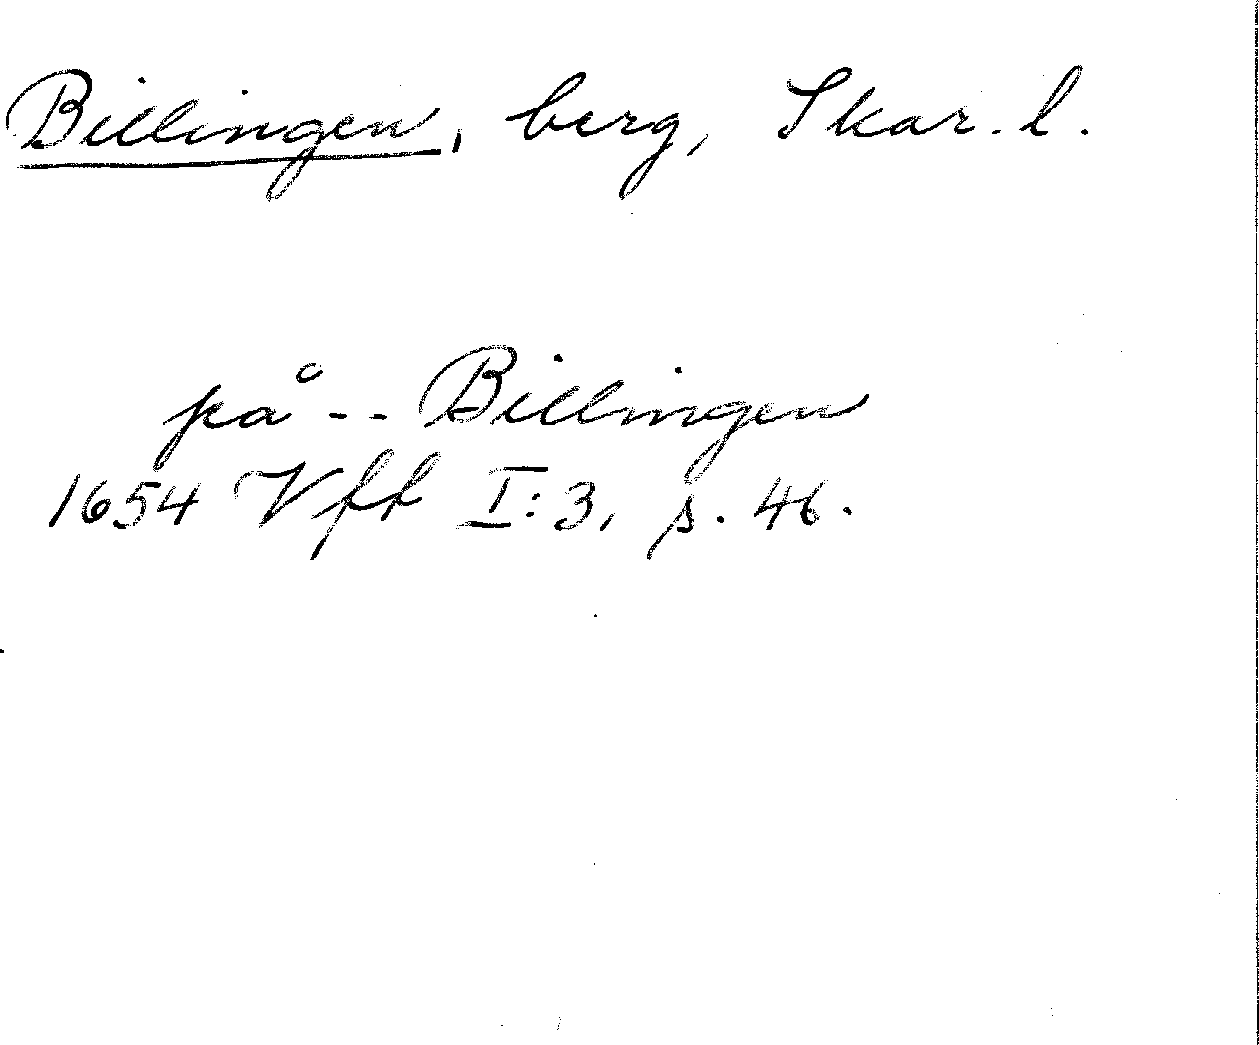 Billingen, berg, Skar. l.
på -- Billingen
1654 Vft I:3, s. 46.